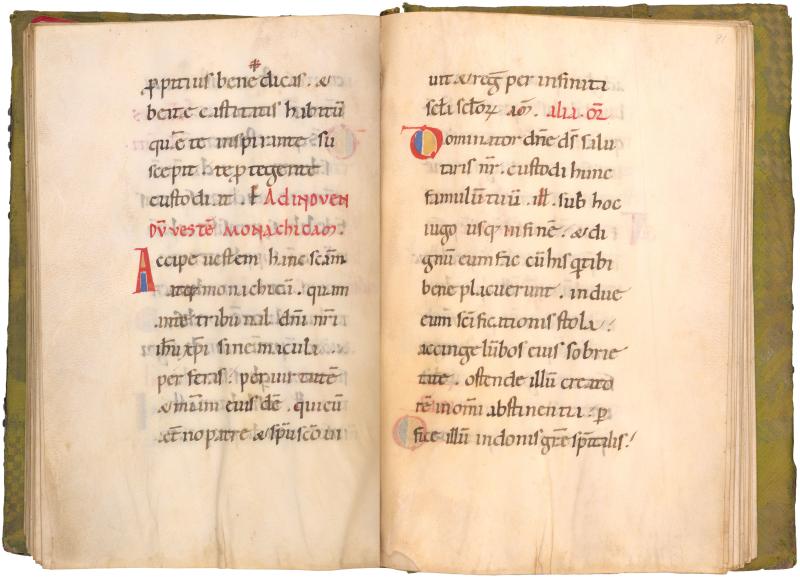 ꝓpitius bene✠dicas. &
beate castitatis habitū
quē te inspirante su
scepit. te ꝓtegente
custodiat. P̄ Ad induen
dū vestē monachicam.
Accipe uestem hanc scām
atq; monachicā. quam
ante tribunal dn̄i nr̄i
ihū xp̄i sine macula
perferas. per uirtutē
& nomen eius dē. qui cū
aeterno patre & sp̄u sc̄o ui
uit & reg̃ per infinita
scl̄a scl̄oꝝ. am̄. alia. or̄.
Dominator dn̄e ds̄ salu
taris nr̄. custodi hunc
famulū tuū. ill̄. sub hoc
iugo usq; in finē. & di
gnū eum fac cū his q̄ tibi
bene placuerunt. indue
eum sc̄ificationis stola.
accinge lūbos eius sobrie
tate. ostende illū creato
rē in omī abstinentia. ꝑ
fice illū in donis grē sp̄italis.